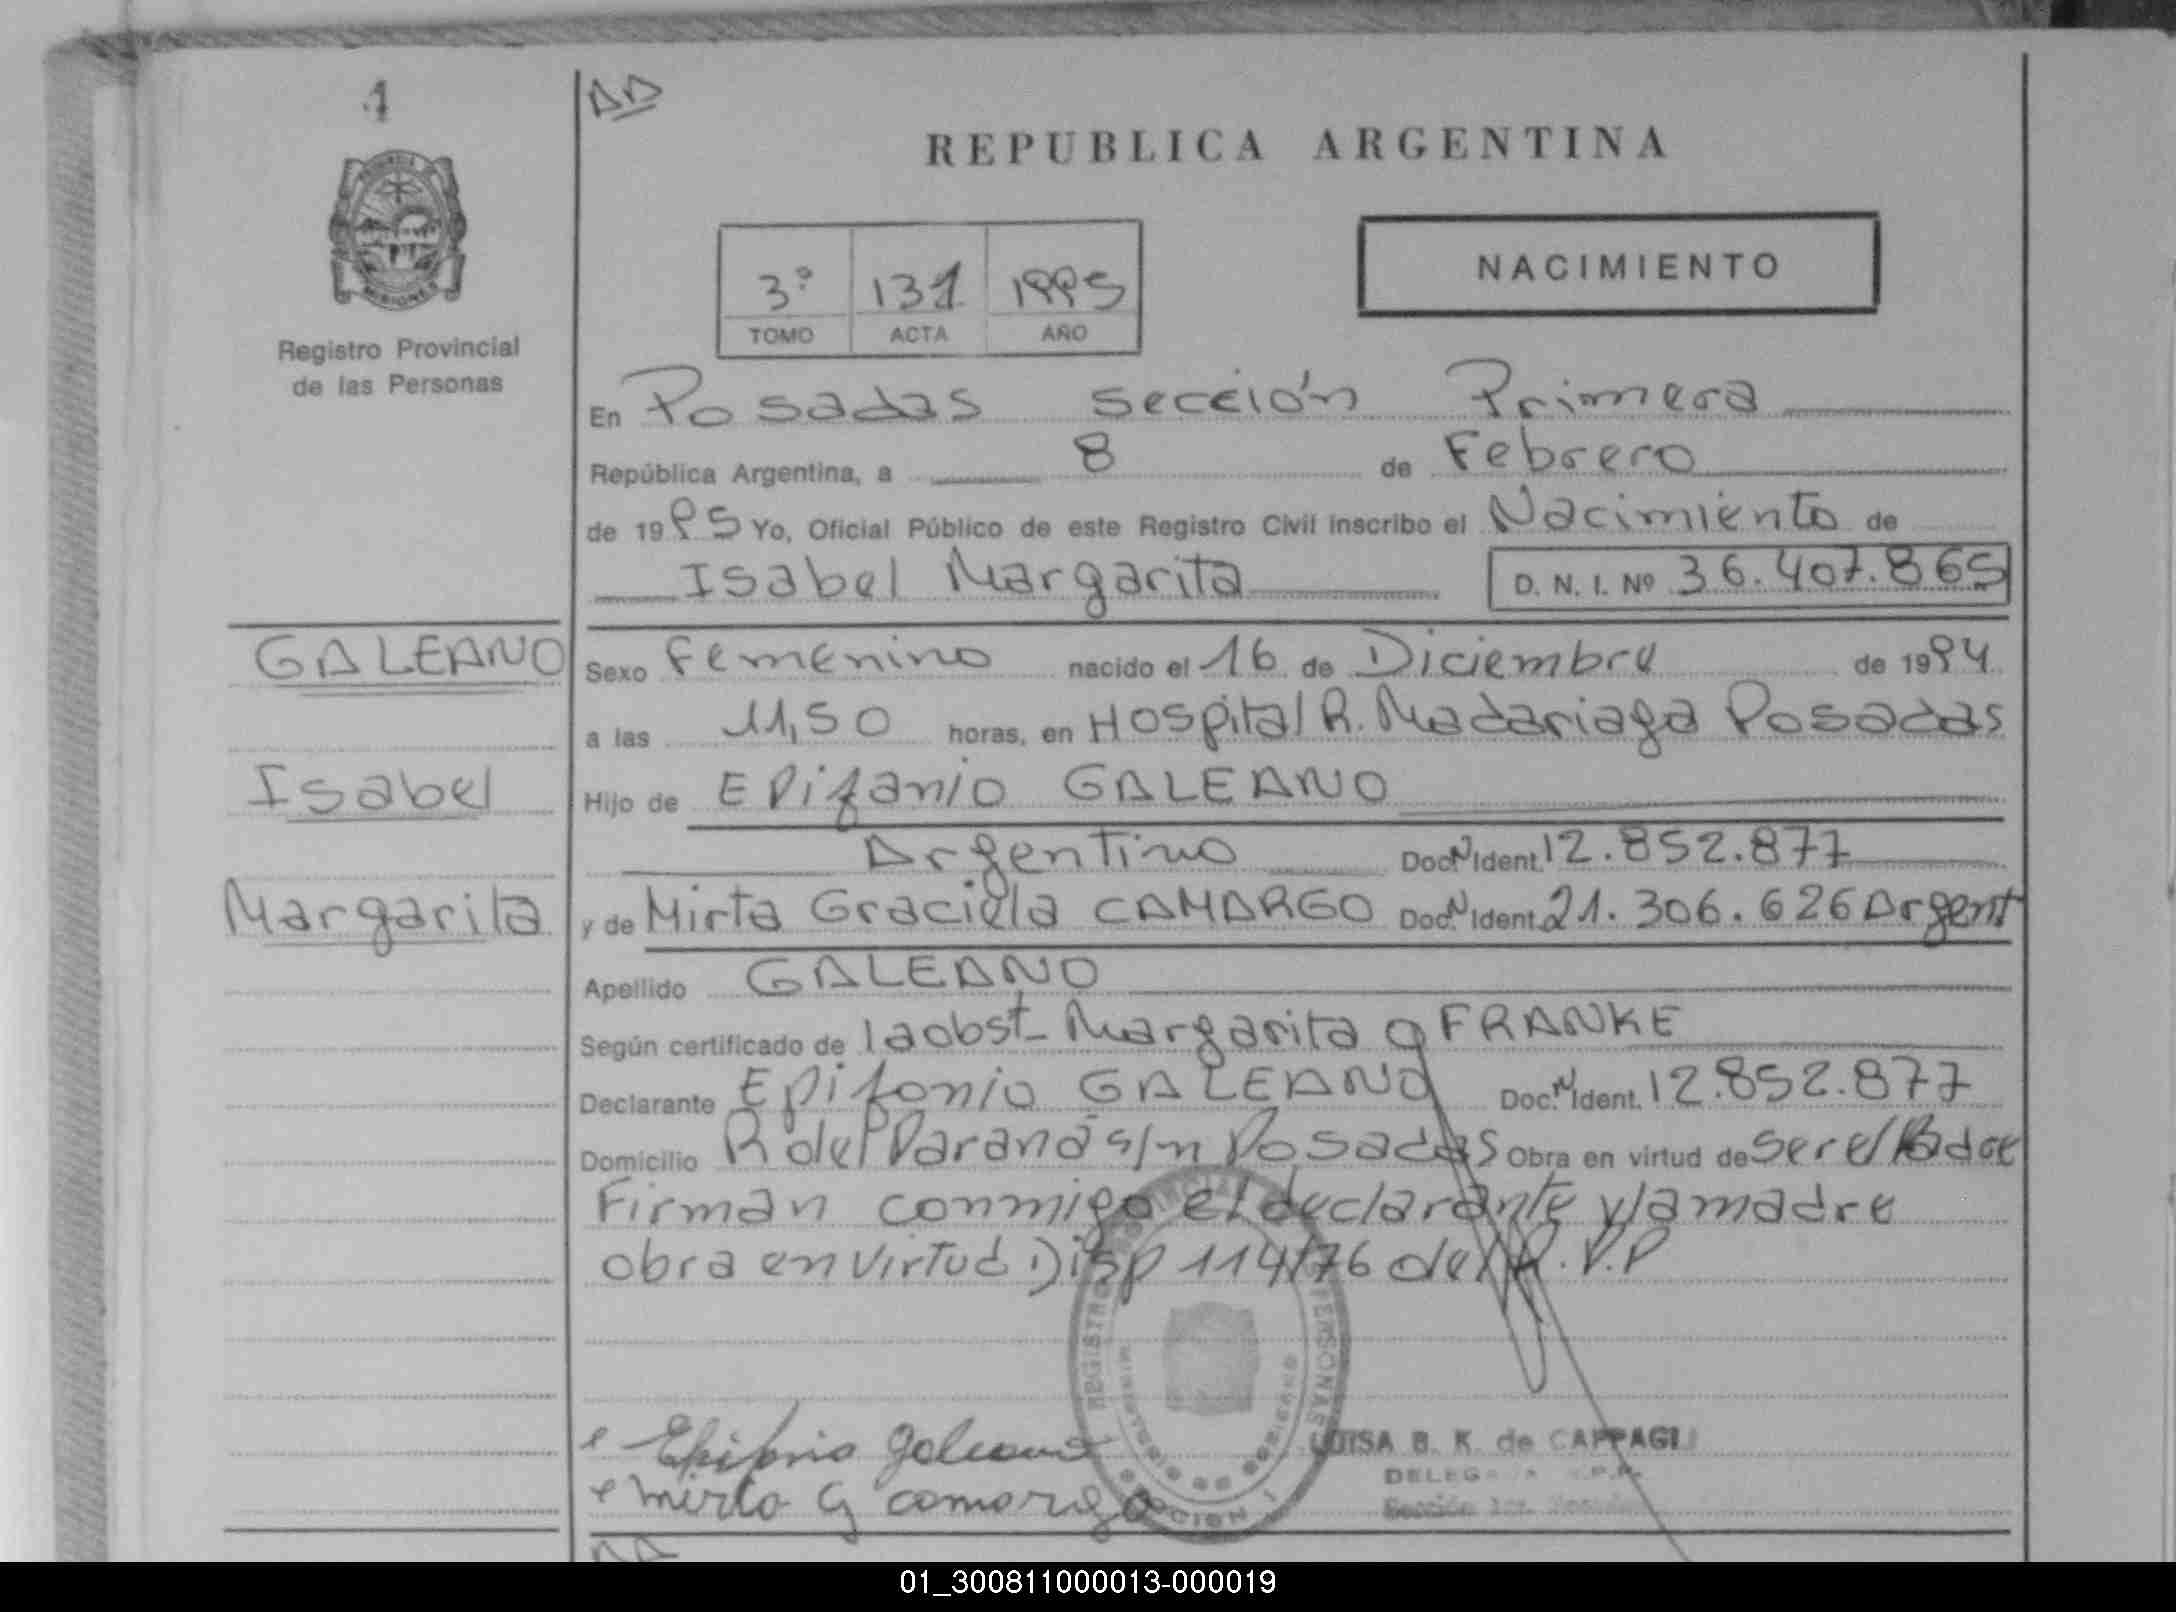 1
AA
REPUBLICA ARGENTINA
MISIONES
Registro Provincial
de las Personas
3º 131 1995
TOMO ACTA AÑO
NACIMIENTO
En Posadas sección Primera
República Argentina, a 8 de Febrero
de 1995 Yo, Oficial Público de este Registro Civil inscribo el Nacimiento de
Isabel Margarita D. N. I. Nº 36.407.865
GALEANO
Isabel
Margarita
Sexo Femenino nacido el 16 de Diciembre de 1994
a las 11,50 horas, en Hospital R. Madariaga Posadas
Hijo de Epifanio GALEANO
Argentino Doc. N Ident. 12.852.877
y de Mirta Graciela CAMARGO Doc. N Ident. 21.306.626 Argent
Apellido GALEANO
Según certificado de la obst- Margarita G FRANKE
Declarante Epifanio GALEANO Doc. N Ident. 12.852.877
Domicilio R del Paraná s/n Posadas Obra en virtud de ser el Padre
Firman conmigo el declarante y la madre
obra en virtud Disp 114/76 del R.P.P
Epifanio Galeano
Mirta G Camargo
REGISTRO PROVINCIAL PERSONAS
SECCION 1
LUISA B. K. de CAPPAGLI
01_300811000013-000019